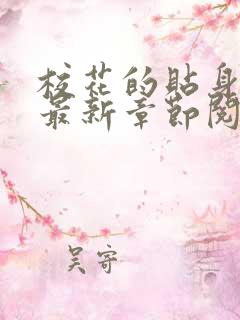 校花的贴身
最新章节阅
吴寄